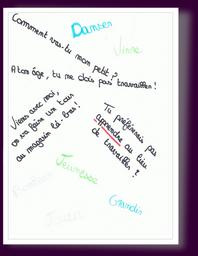 Danser
Vivre
Comment vas-tu mon petit ?
A ton âge, tu ne dois pas travailler !
Viens avec moi,
on va faire un tour
au magasin
Tu préférerais pas
apprendre au lieu
de travailler ?
Jeunesse
Grandir